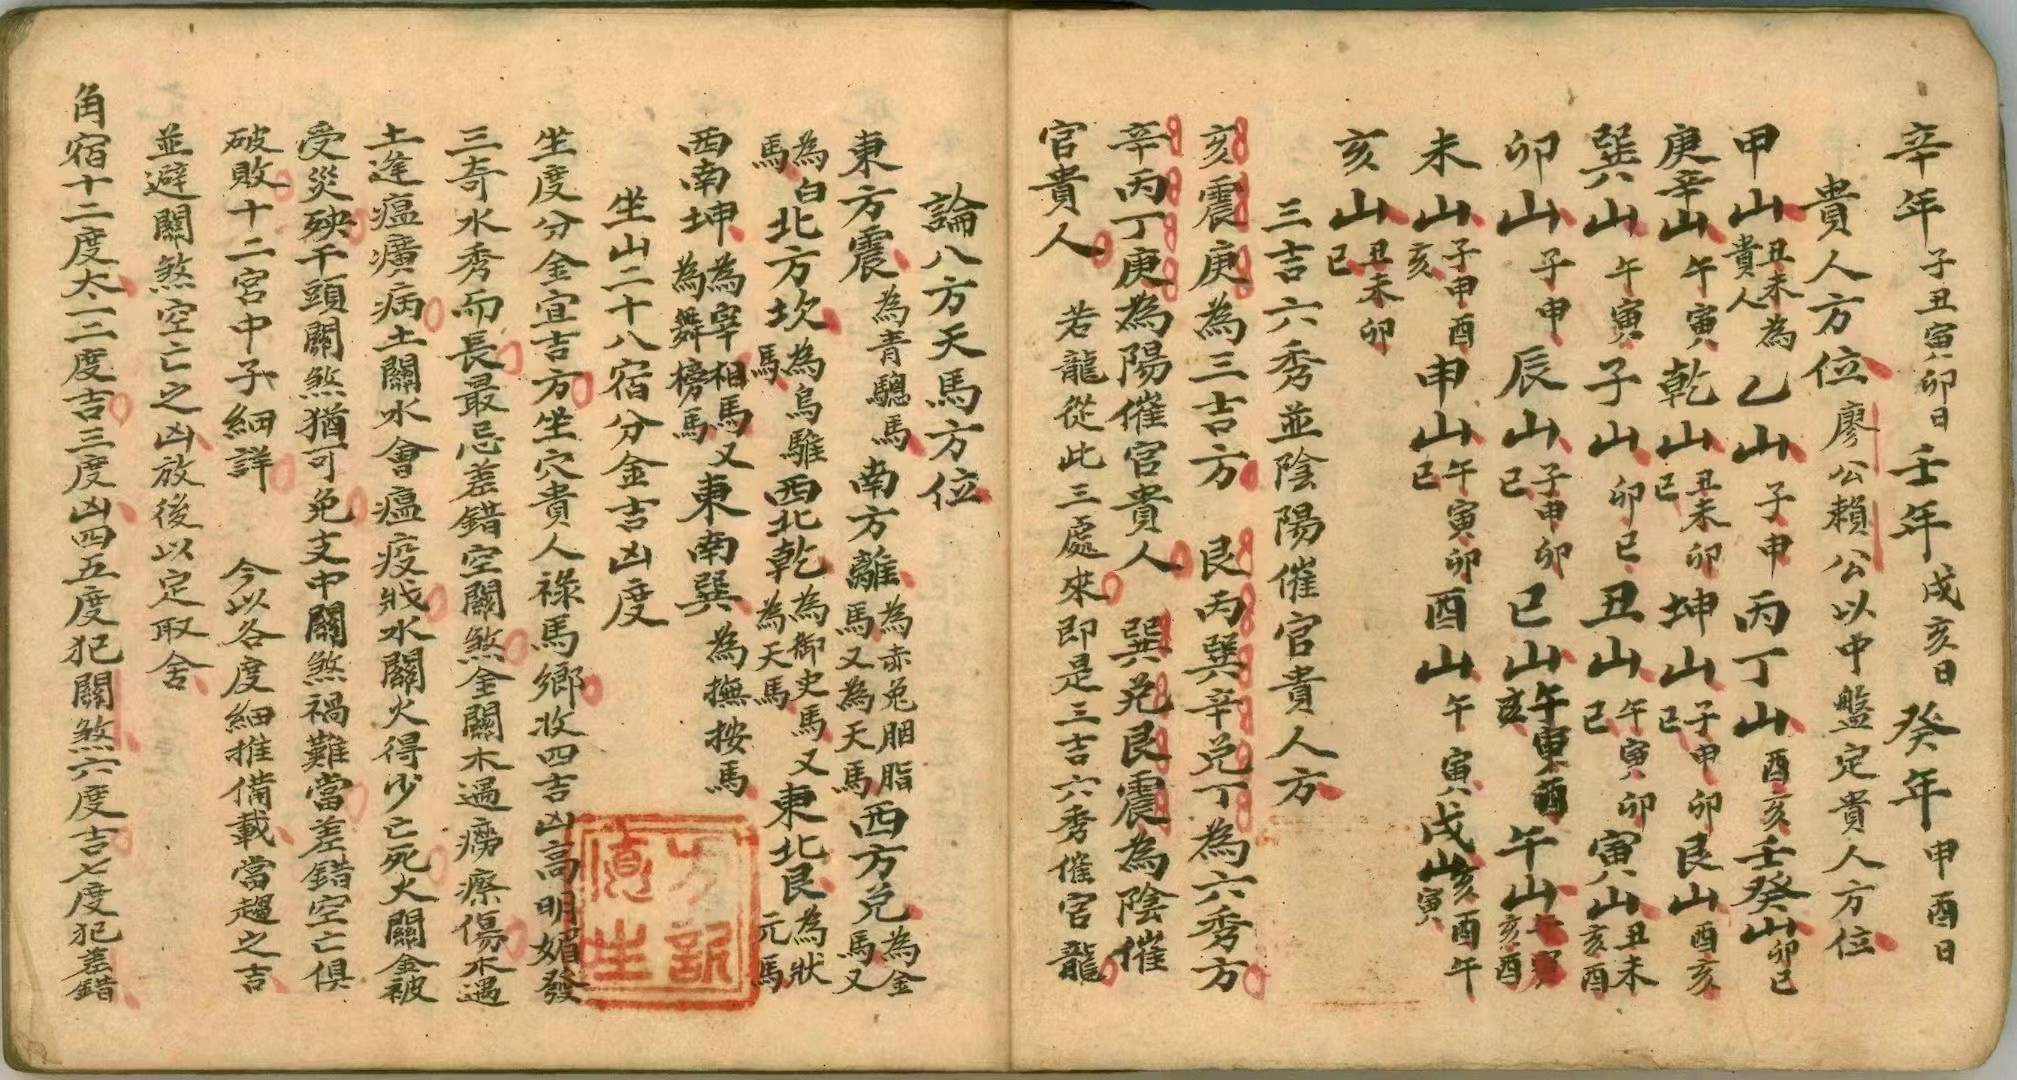 辛年子丑寅卯日壬年戌亥日癸年申酉日
貴人方位廖公賴公以中盤定貴人方位
甲山丑未為貴人乙山子申丙丁山酉亥壬癸山卯巳
庚辛山午寅乾山丑未卯巳坤山子申卯巳艮山酉亥
巽山午寅子山卯巳丑山午寅卯巳寅山丑未亥酉
卯山子申辰山子申卯巳巳山午東酉亥午山亥酉
未山子申酉亥申山午寅卯巳酉山午寅戌山亥酉午寅
亥山丑未卯巳
三吉六秀並陰陽催官貴人方
亥震庚為三吉方 艮丙巽辛兌丁為六秀方
辛丙丁庚為陽催官貴人 巽兌艮震為陰催
官貴人 若龍從此三處來即是三吉六秀催官龍
論八方天馬方位
東方震為青驄馬南方離為赤兔胭脂馬又為天馬西方兌為金馬又
為白馬北方坎為烏騅馬西北乾為御史馬又為天馬東北艮為狀元馬
西南坤為宰相馬又為舞榜馬東南巽為撫按馬
坐山二十八宿分金吉凶度
坐度分金宜吉方坐穴貴人祿馬鄉收四吉凶高明媚發
三奇水秀而長最忌差錯空關煞金關木遇癆瘵傷木遇
土逢瘟癀病土關水會瘟疫戕水關火得少亡死火關金被
受災殃干頭關煞猶可免支中關煞禍難當差錯空亡俱
破敗十二宮中子細詳 今以各度細推備載當趨之吉
並避關煞空亡之凶放後以定取舍
角宿十二度太一二度吉三度凶四五度犯關煞六度吉七度犯差錯